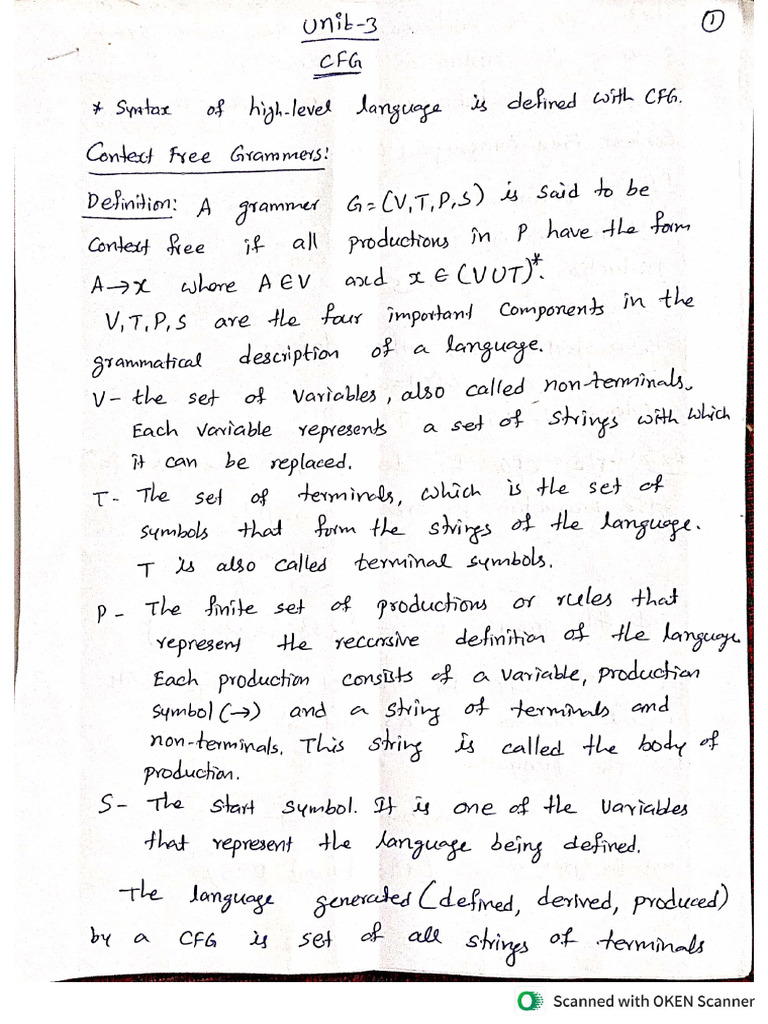 Unit-3
1
CFG
* Syntax of high-level language is defined with CFG.
Context Free Grammers:
Definition: A grammer G=(V,T,P,S) is said to be
Context free if all productions in P have the form
A→x where A∈V and x∈(VUT)*.
V,T,P,S are the four important components in the
grammatical description of a language.
V- the set of variables, also called non-terminals.
Each variable represents a set of strings with which
it can be replaced.
T- The set of terminals, which is the set of
symbols that form the strings of the language.
T is also called terminal symbols.
P- The finite set of productions or rules that
represent the reccursive definition of the language
Each production consists of a variable, production
symbol (→) and a string of terminals and
non-terminals. This string is called the body of
production.
S- The start symbol. It is one of the variables
that represent the language being defined.
The language generated (defined, derived, produced)
by a CFG is set of all strings of terminals
Scanned with OKEN Scanner